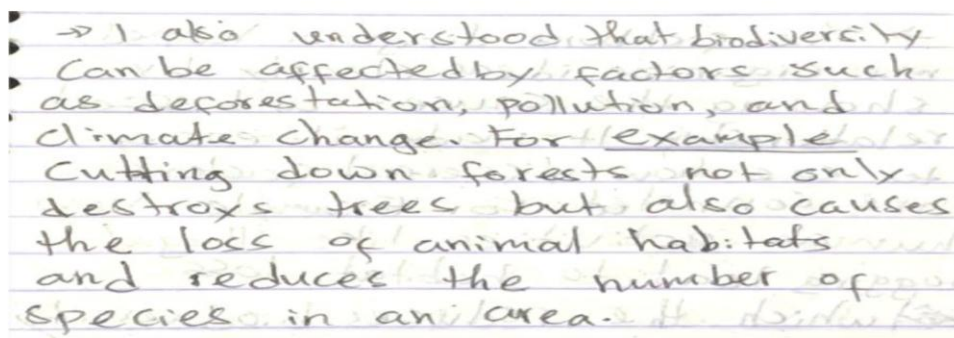 → I also understood that biodiversity
can be affected by factors such
as deforestation, pollution, and
climate change. For example
Cutting down forests not only
destroys trees but also causes
the loss of animal habitats
and reduces the number of
species in an area.